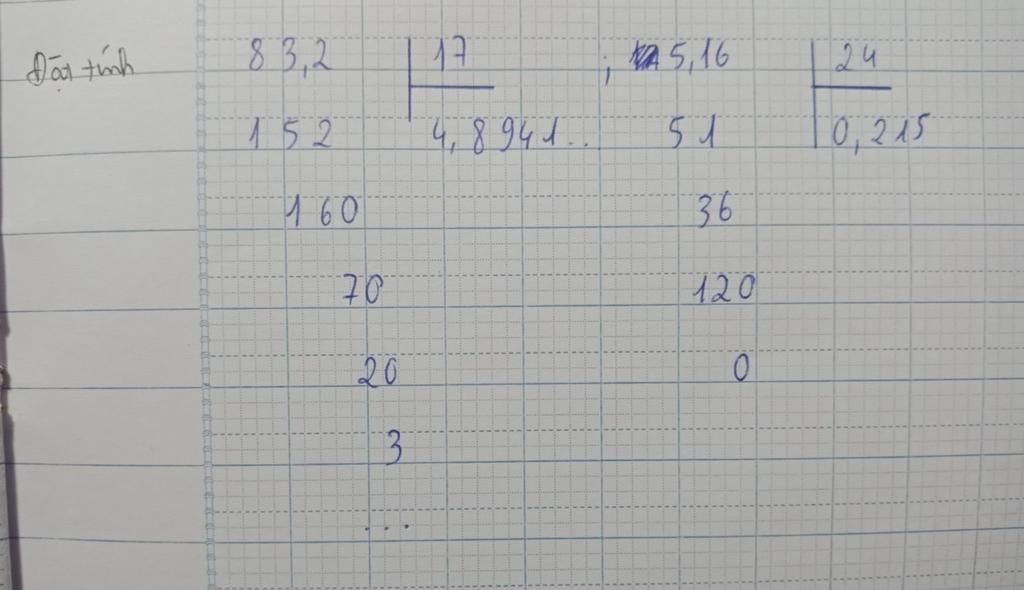 Đặt tính 83,2 17 ; 5,16 24
152 4,8941... 51 0,215
160 36
70 120
20 0
3
...